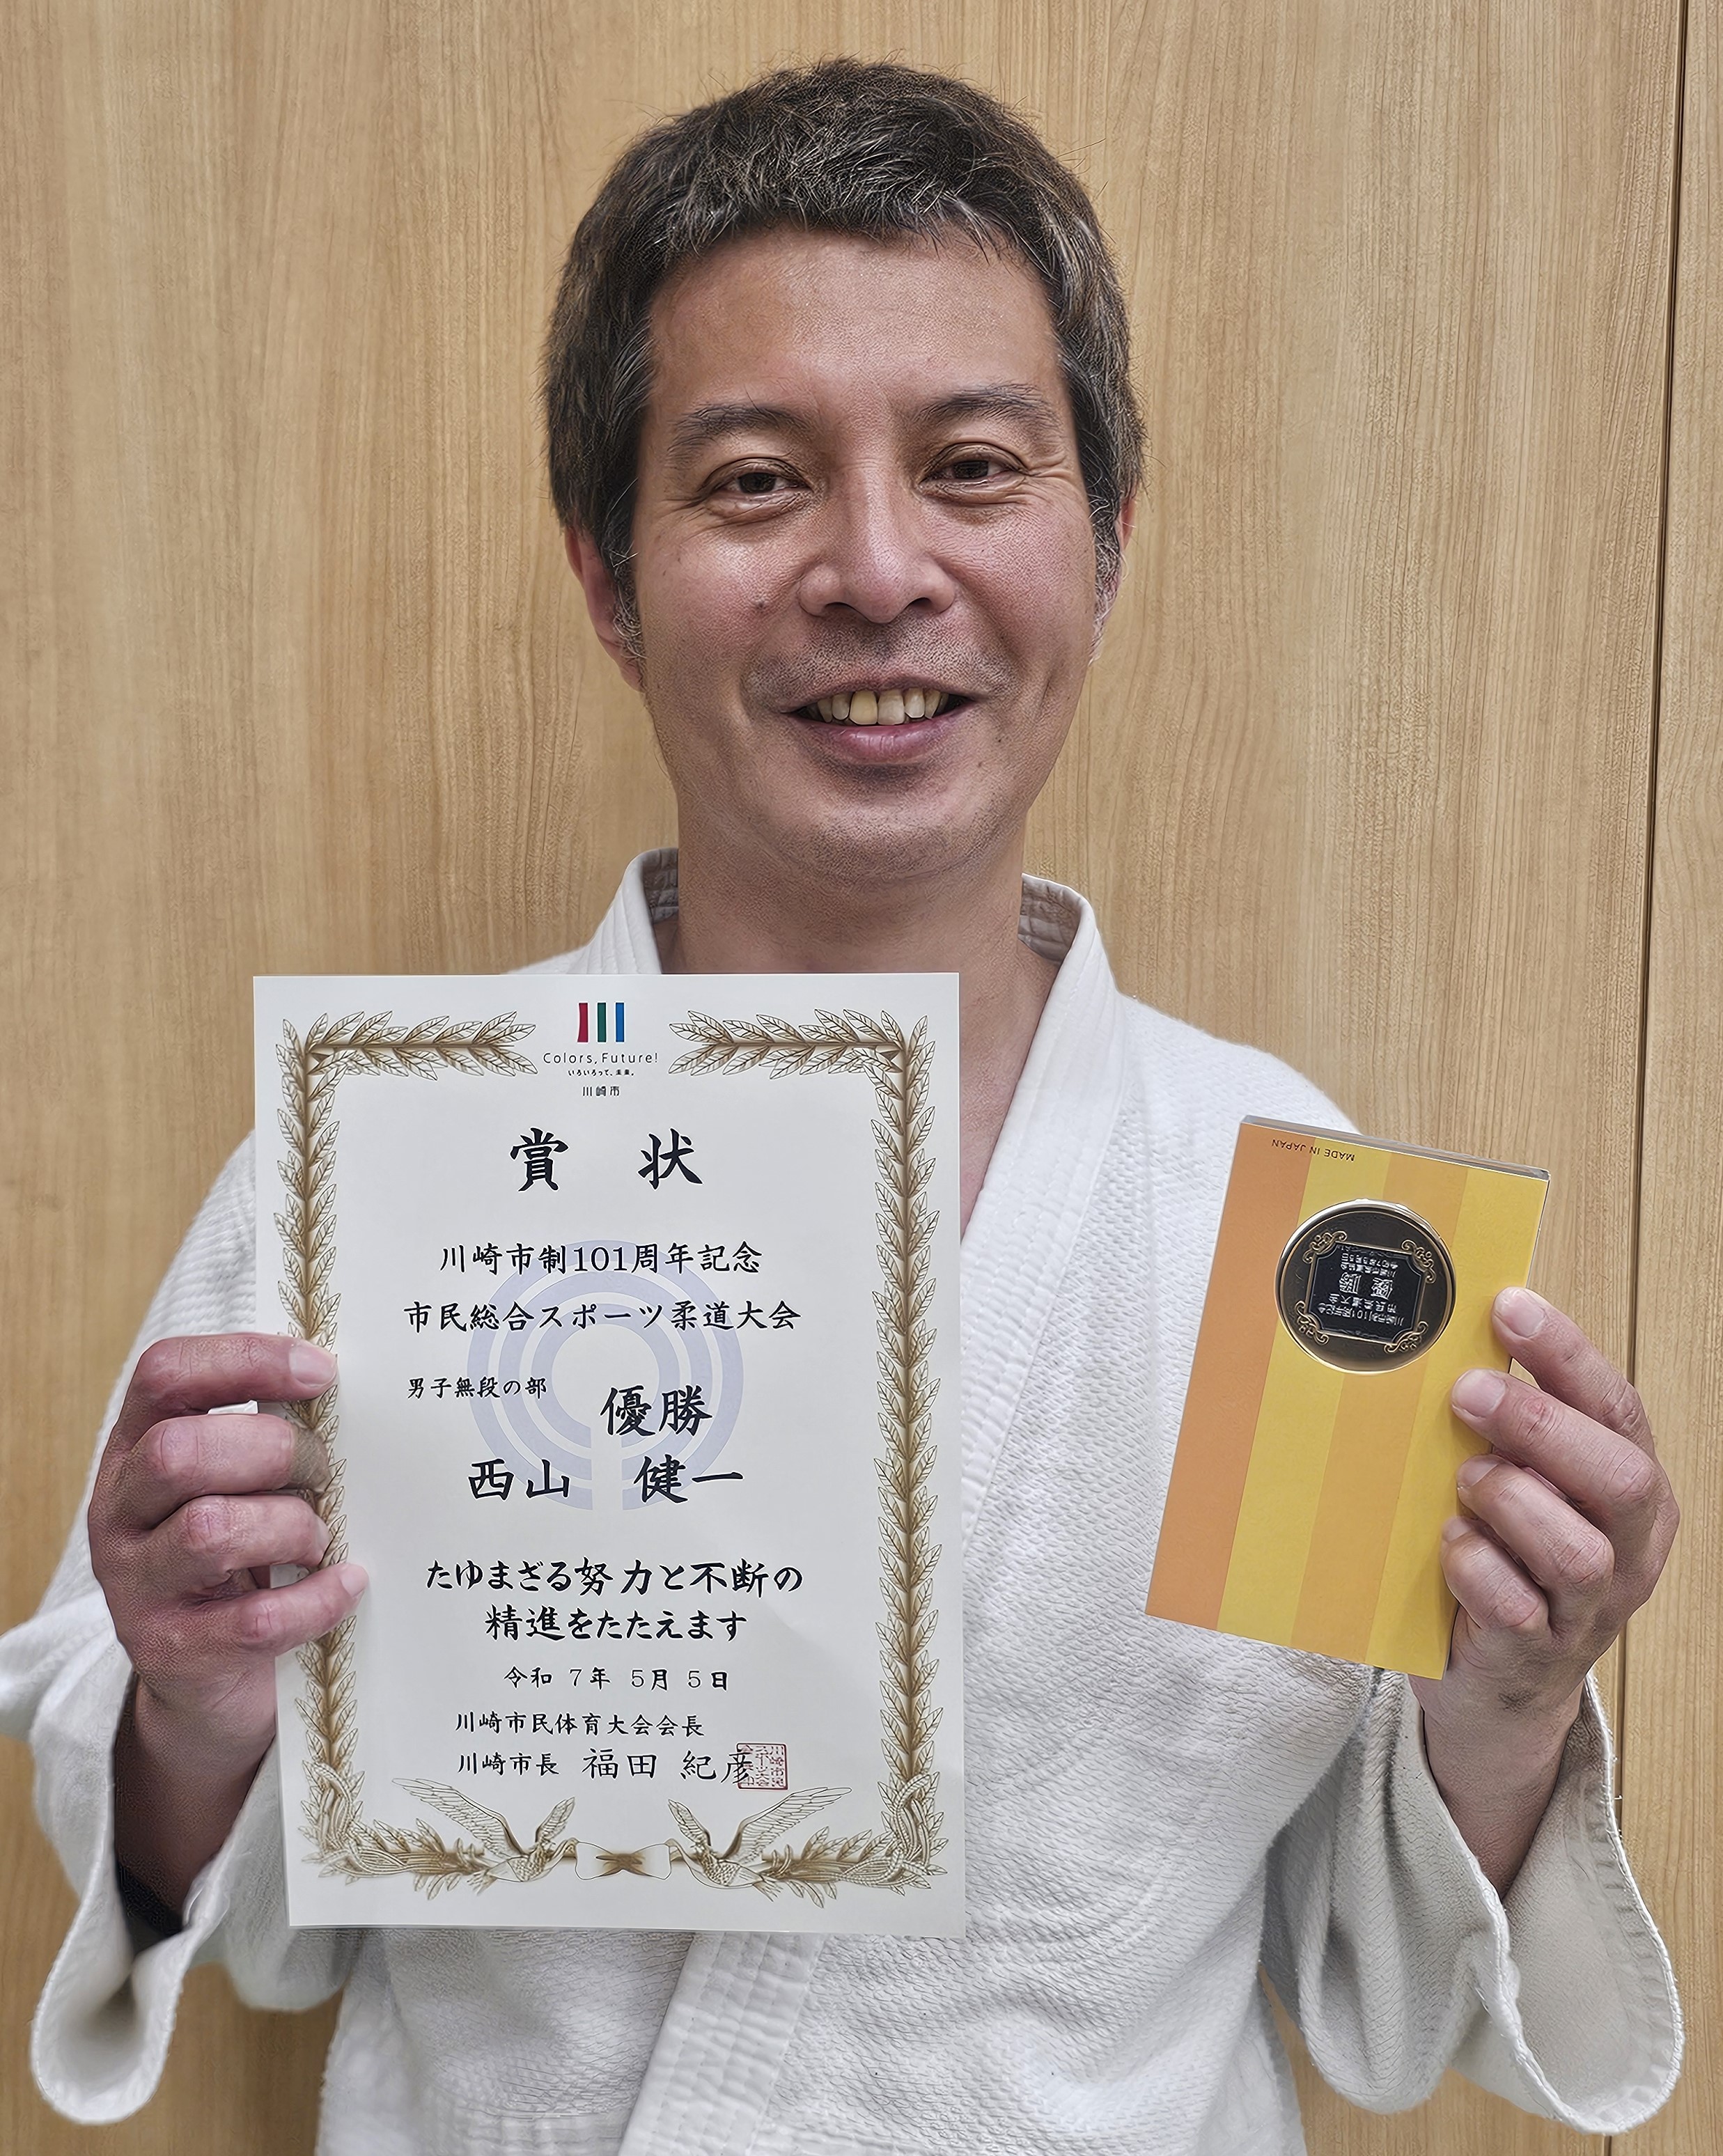 Colors, Future!
いろいろって、未来。
川崎市
賞 状
川崎市制101周年記念
市民総合スポーツ柔道大会
男子無段の部
優勝
西山 健一
たゆまざる努力と不断の
精進をたたえます
令和 7年 5月 5日
川崎市民体育大会会長
川崎市長 福田 紀彦
MADE IN JAPAN
川崎市制101周年記念
市民柔道大会
優勝